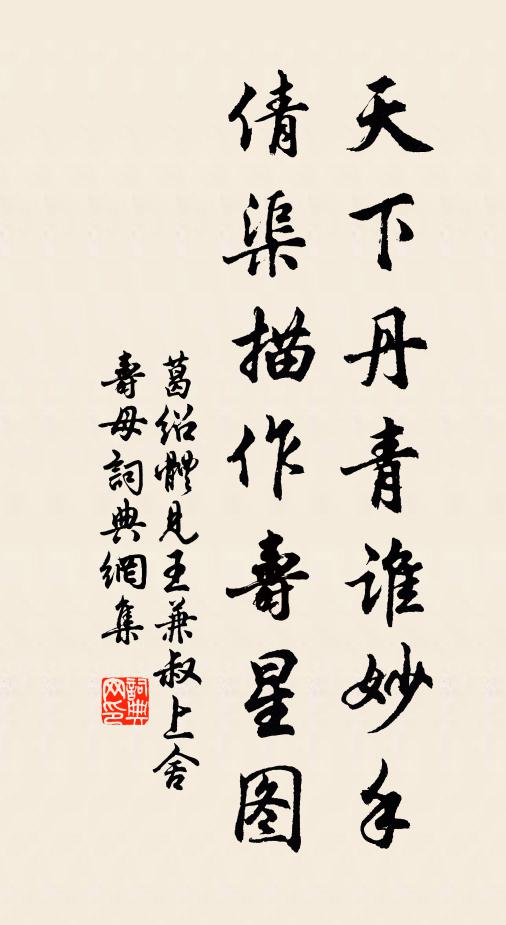 天下丹青谁妙手
倩渠描作壽星图
葛绍體見王兼叔上舍
壽母詞典網集
詞典
网印